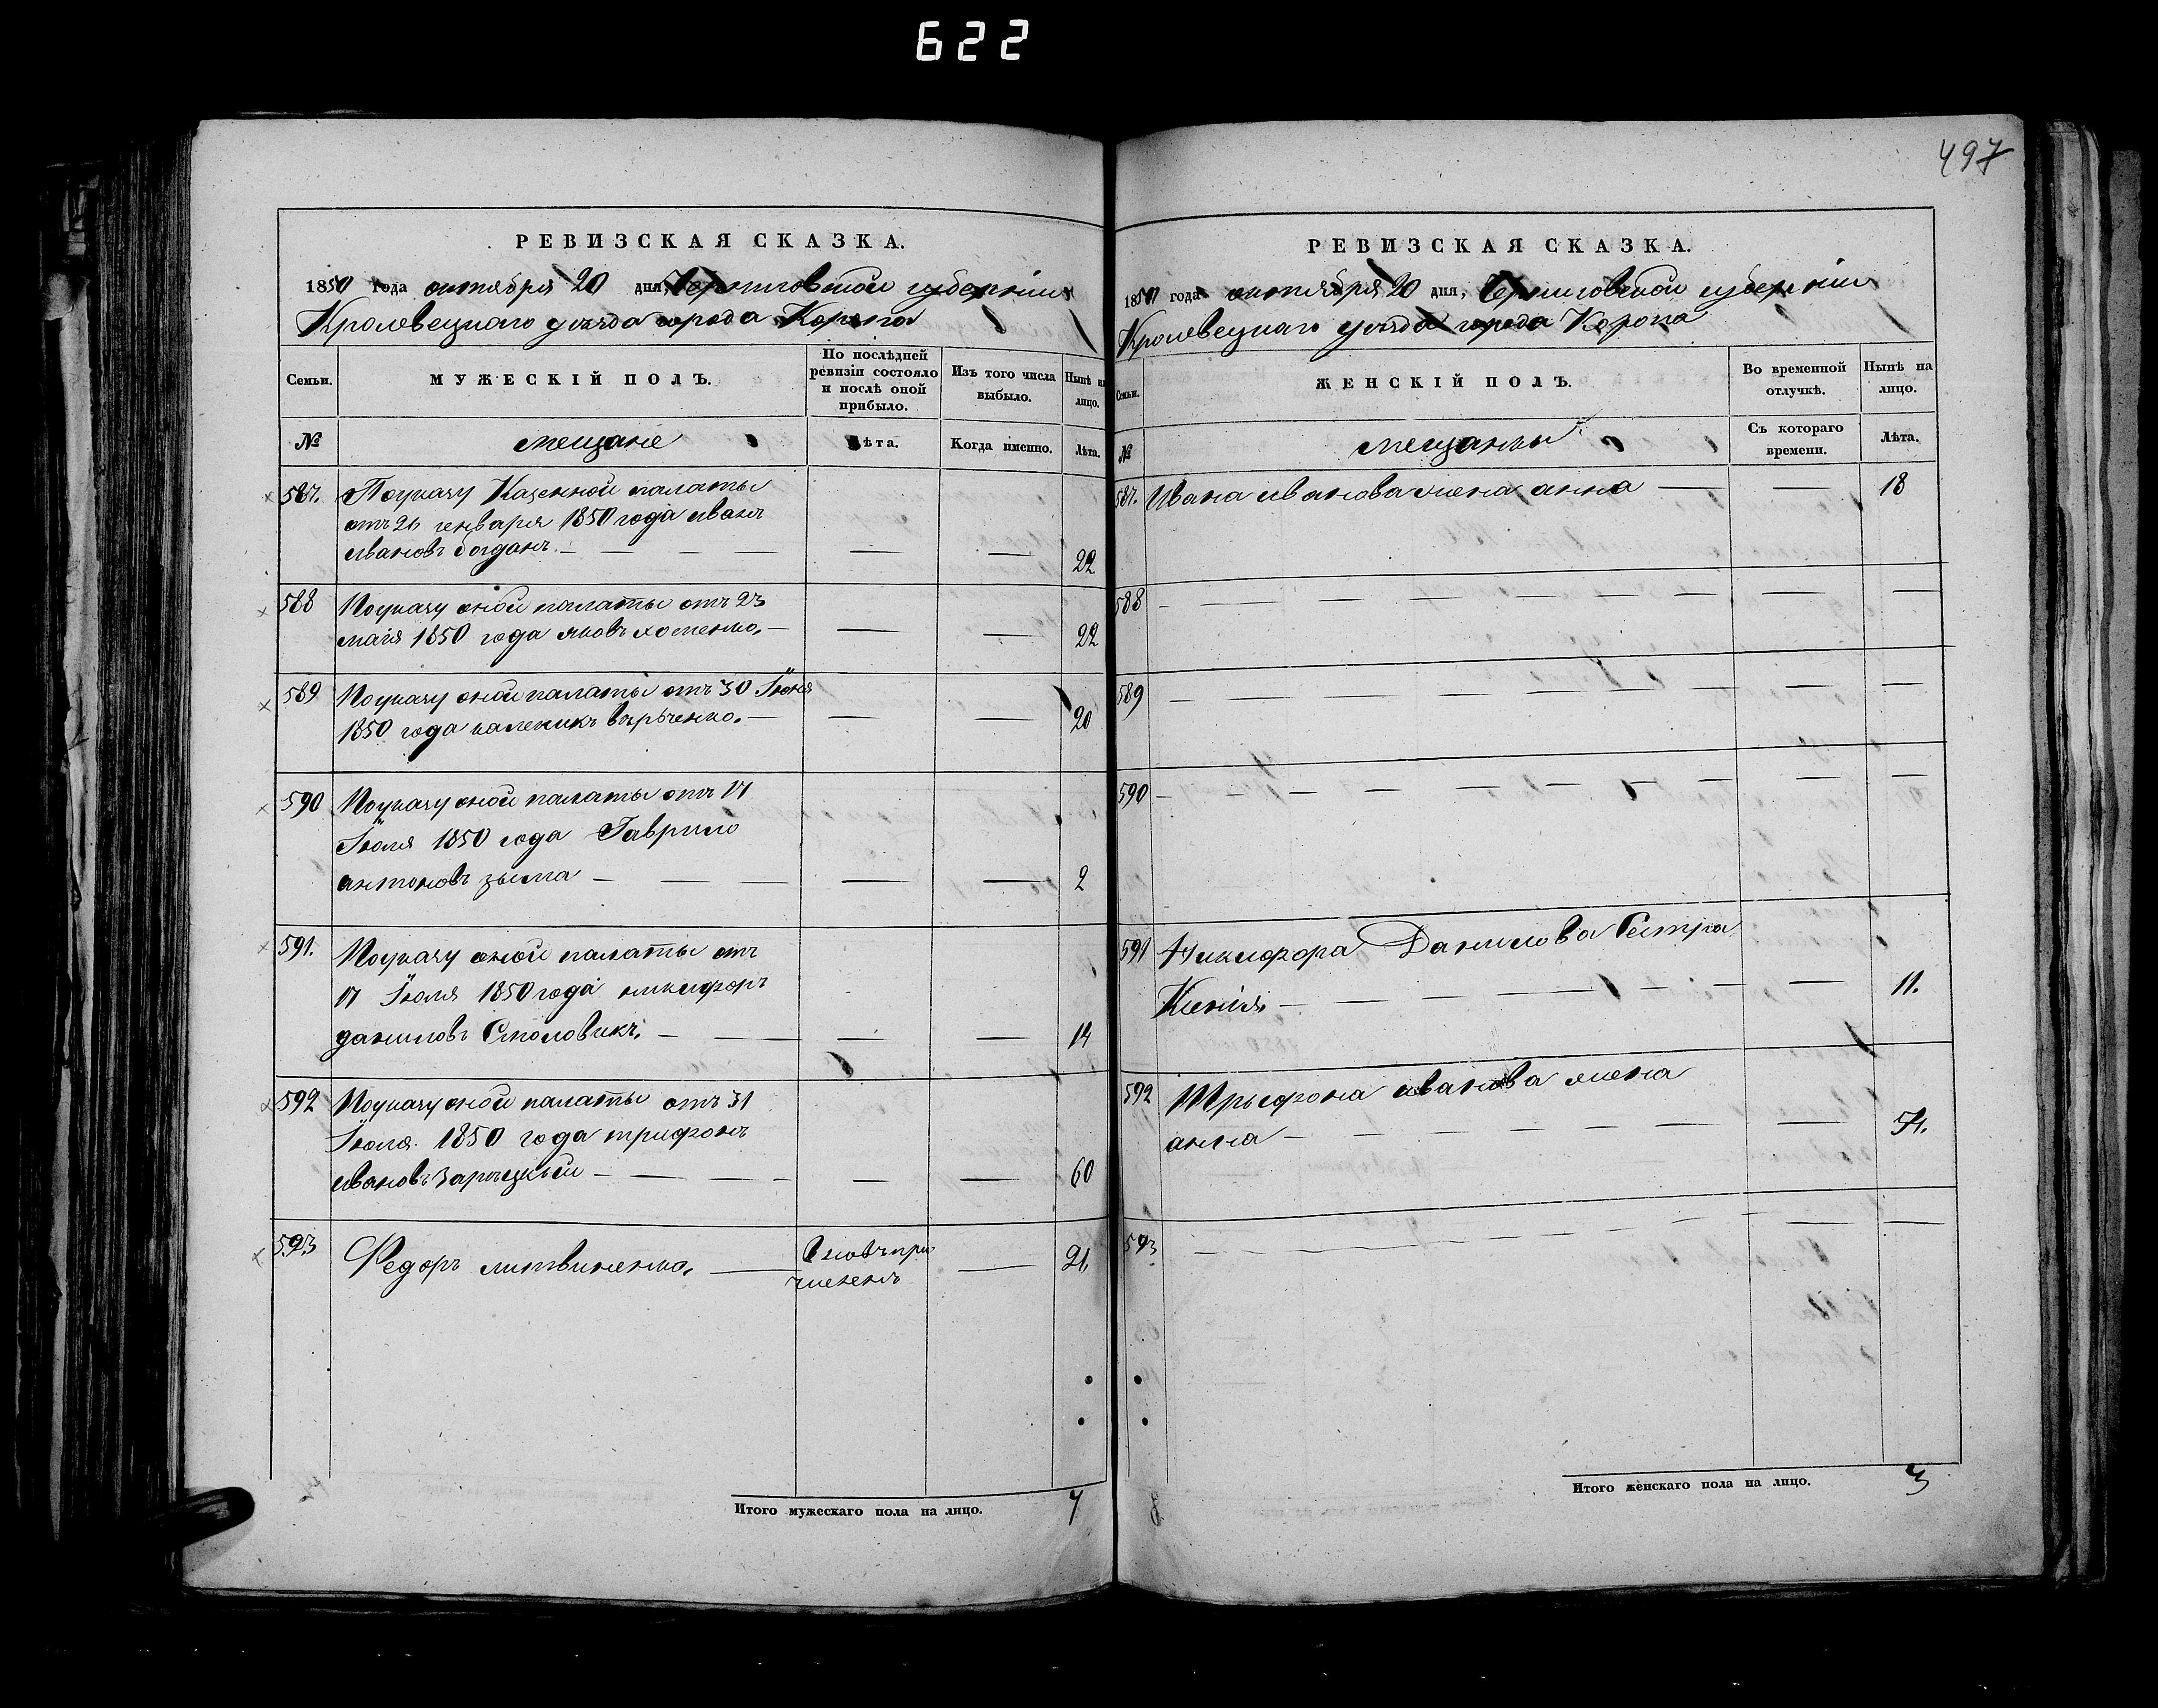 622
497
РЕВИЗСКАЯ СКАЗКА.
1850 года октября 20 дня, Черниговской губернии
Кролевецкаго уѣзда города Коропа
Семьи.
МУЖЕСКІЙ ПОЛЪ.
По послѣдней ревизіи состояло и послѣ оной прибыло.
Изъ того числа выбыло.
Нынѣ на лицо.
№
мещане
Лѣта.
Когда именно.
Лѣта.
587. По указу Казенной палаты
отъ 21 генваря 1850 года иванъ
ивановъ богданъ — — — — — — 22
588 По указу оной палаты отъ 23
маія 1850 года яковъ хоменко. — — — 22
589 По указу оной палаты отъ 30 Іюня
1850 года каленикъ вѣрѣченко. — — — 20
590 По указу оной палаты отъ 17
Іюля 1850 года Гаврило
антоновъ зыма — — — — — 2
591. По указу оной палаты отъ
17 Іюля 1850 года никифоръ
даниловъ Столовикъ. — — — — 14
592 По указу оной палаты отъ 31
Іюля 1850 года трифонъ
ивановъ зарѣцкый — — — — — — 60
593 Федоръ литвиненко. — вновь при — 21.
численъ
Итого мужескаго пола на лицо. 7
РЕВИЗСКАЯ СКАЗКА.
1850 года октября 20 дня, Черниговской губерніи
Кролевецкаго уѣзда города Коропа
Семьи.
ЖЕНСКІЙ ПОЛЪ.
Во временной отлучкѣ.
Нынѣ на лицо.
№
мещанки
Съ котораго времени.
Лѣта.
587. Ивана иванова жена анна — — 18
588 — — — — — — — — — —
589 — — — — — — — — —
590 — — — — — — — — — —
591 Никифора Данилова Сестра
Ксенія — — — — — — — 11.
592 Трыфона иванова жена
анна — — — — — — —
593 — — — — — — — — —
Итого женскаго пола на лицо. 3